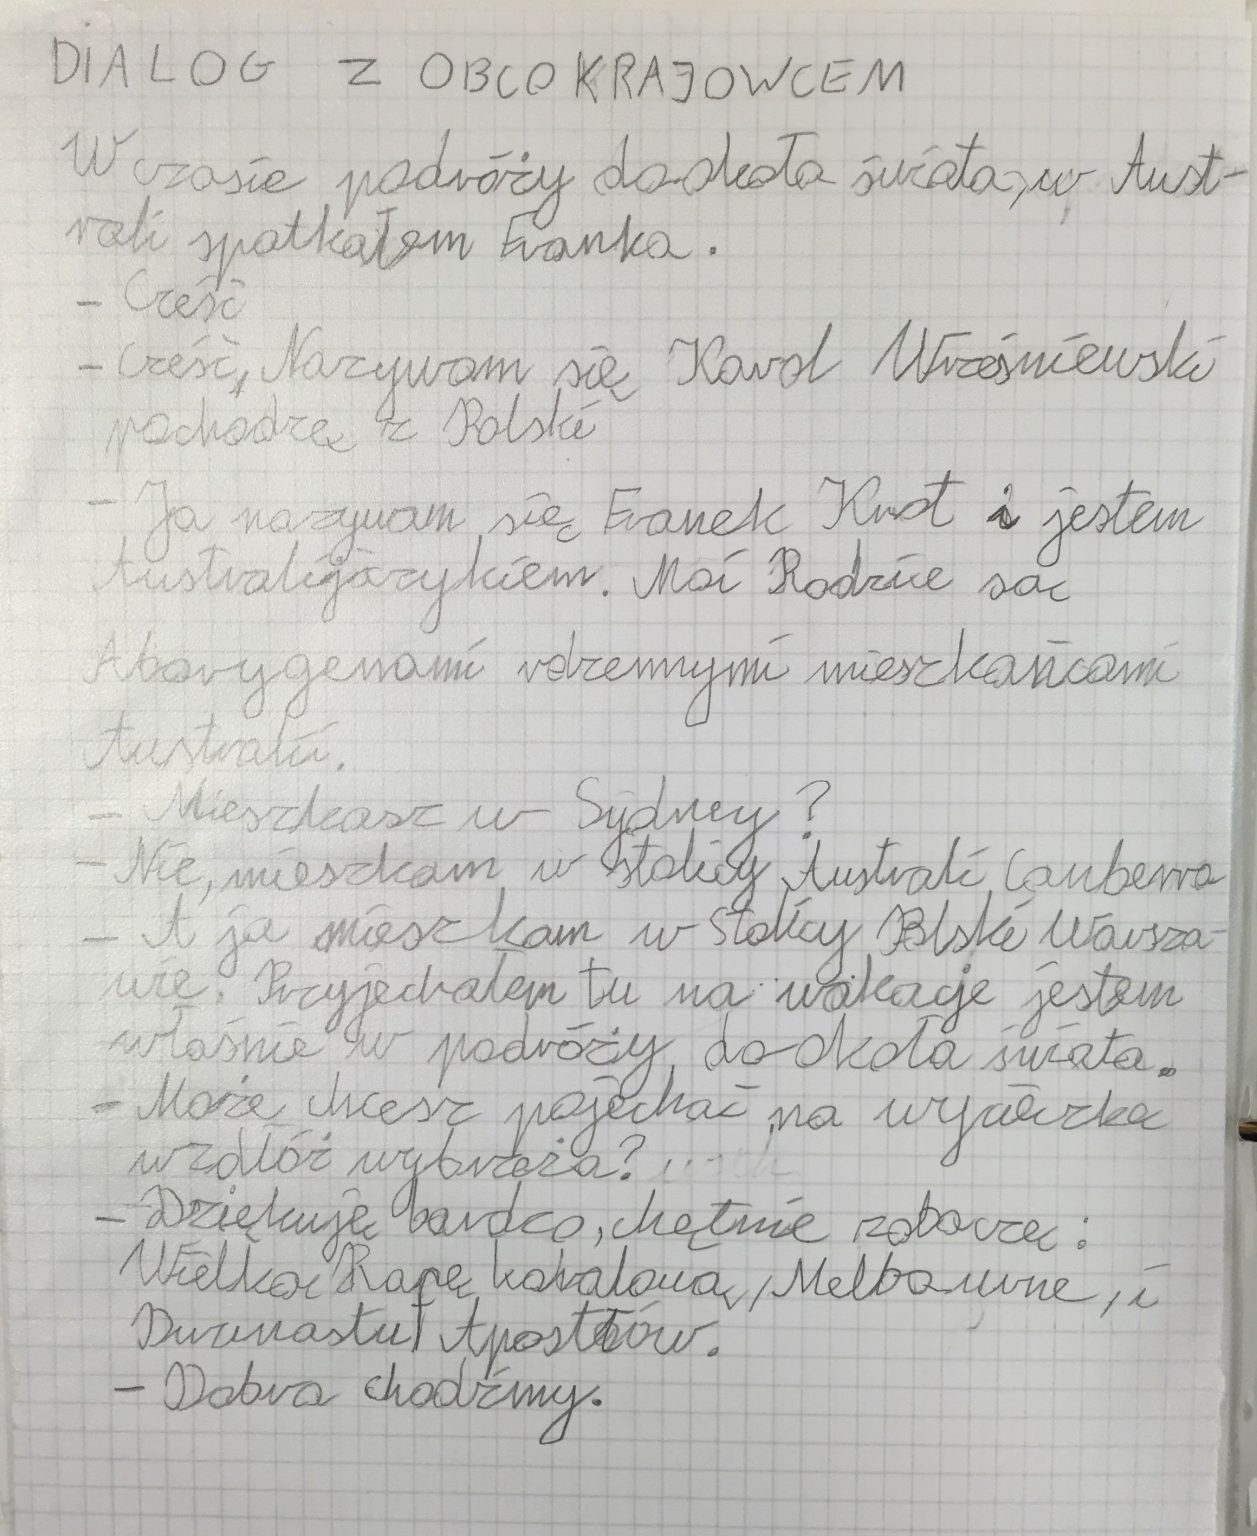 DIALOG Z OBCOKRAJOWCEM
W czasie podróży do-okoła świata, w Aust-
rali spotkałem Franka.
- Cześć
- Cześć, Nazywam się Karol Wrześniewski
pochodzę z Polski
- Ja nazywam się Franek Knot i jestem
Australijczykiem. Moi Rodzice są
Aborygenami rdzennymi mieszkańcami
Australii.
- Mieszkasz w Sydney?
- Nie, mieszkam w stolicy Australi Canberra
- A ja mieszkam w Stolicy Polski Warsza-
wie. Przyjechałem tu na wakacje jestem
właśnie w podróży do-okoła świata.
- Może chcesz pojechać na wycieczka
wzdłóż wybrzeża?
- Dziękuję bardzo, chętnie zobaczę:
Wielką Rafę koralową, Melbourne, i
Dwunastu Apostołów.
- Dobra chodźmy.